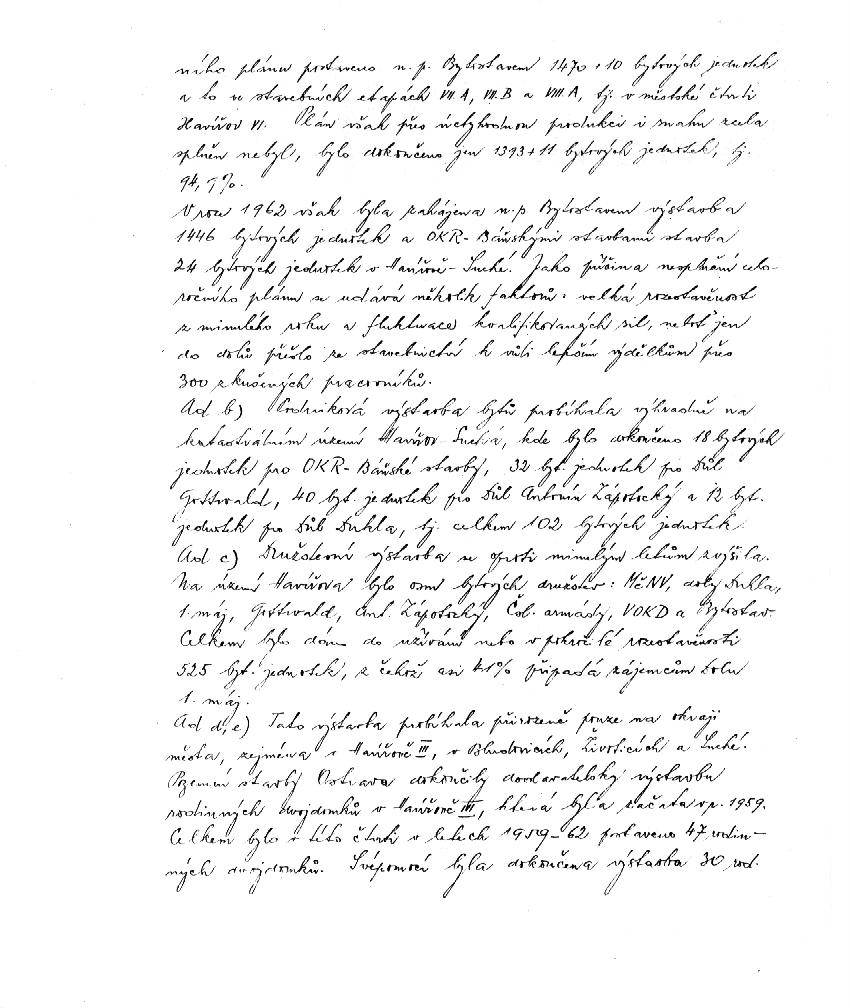 ního plánu postaveno n. p. Bytostavem 1470 + 10 bytových jednotek
a to ve stavebních etapách VII.A, VII.B a VIII.A, tj. v městské čtvrti
Havířov VI. Plán však přes úctyhodnou produkci i snahu zcela
splněn nebyl, bylo dokončeno jen 1393 + 11 bytových jednotek, tj.
94,9%.
V roce 1962 však byla zahájena n.p Bytostavem výstavba
1446 bytových jednotek a OKR-Báňskými stavbami stavba
24 bytových jednotek v Havířově-Suché. Jako příčina nesplnění celo-
ročního plánu se udává několik faktorů: velká rozestavěnost
z minulého roku a fluktuace kvalifikovaných sil, neboť jen
do dolů přešlo ze stavebnictví k vůli lepším výdělkům přes
300 zkušených pracovníků.
Ad b) Podniková výstavba bytů probíhala výhradně na
katastrálním území Havířov-Suchá, kde bylo dokončeno 18 bytových
jednotek pro OKR-Báňské stavby, 32 byt. jednotek pro Důl
Gottwald, 40 byt. jednotek pro Důl Antonín Zápotocký a 12 byt.
jednotek pro Důl Dukla, tj. celkem 102 bytových jednotek.
Ad c) Družstevní výstavba se oproti minulým letům zvýšila.
Na území Havířova bylo osm bytových družstev: MěNV, doly Dukla,
1. máj, Gottwald, Ant. Zápotocký, Čsl. armády, VOKD a Bytostav.
Celkem bylo dáno do užívání nebo v pokročilé rozestavěnosti
525 byt. jednotek, z čehož asi 41% připadá zájemcům Dolu
1. máj.
Ad d, e) Tato výstavba probíhala přirozeně pouze na okraji
města, zejména v Havířově III, v Bludovicích, Životicích a Suché.
Pozemní stavby Ostrava dokončily dodavatelsky výstavbu
rodinných dvojdomků v Havířově III, která byla začata v r. 1959.
Celkem bylo v této čtvrti v letech 1959-62 postaveno 47 rodin-
ných dvojdomků. Svépomocí byla dokončena výstavba 30 rod.